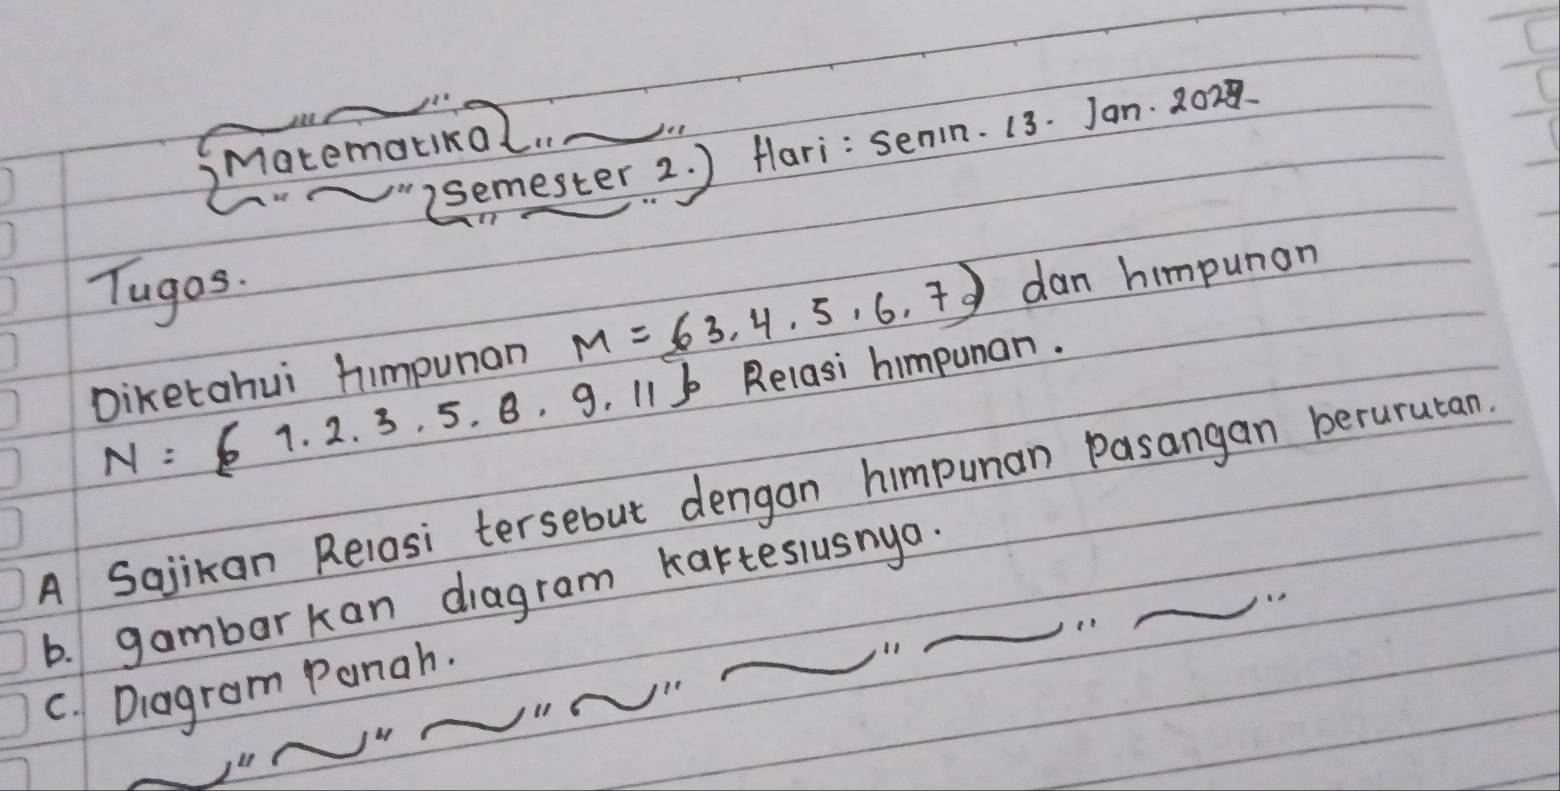 Matematika
Semester 2.) Hari : Senin. 13. Jan. 202
Tugas.
Diketahui himpunan M = {3, 4, 5, 6, 7} dan himpunan
N = { 1. 2. 3. 5. 8. 9. 11 } Relasi himpunan.
A Sajikan Relasi tersebut dengan himpunan pasangan berurutan.
b. gambarkan diagram kartesiusnya.
c. Diagram Panah.